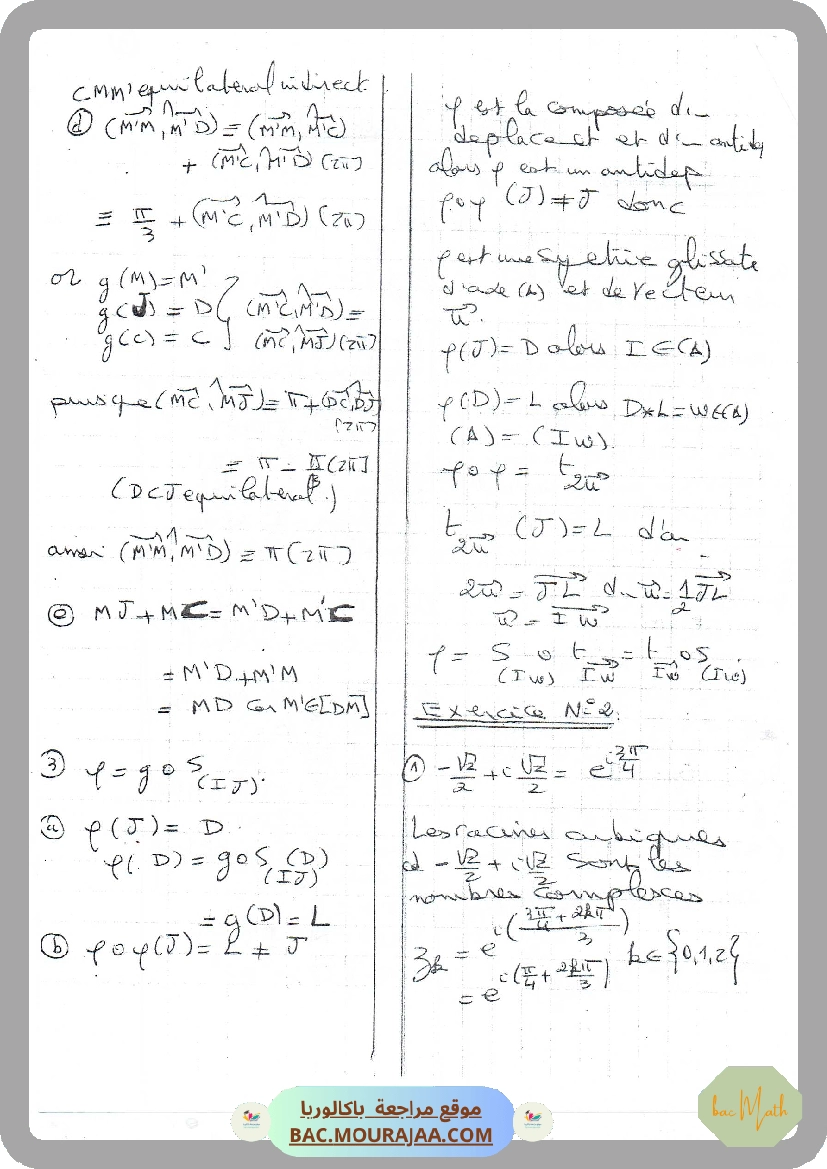 CMM' equilateral indirect
ⓓ (M'M, M'D) ≡ (M'M, M'C)
+ (M'C, M'D) (2π)
≡ π/3 + (M'C, M'D) (2π)
or g(M) = M'
g(J) = D } (M'C, M'D) ≡
g(C) = C (MC, MJ) (2π)
puisque (MC, MJ) ≡ π + (DC, DJ)
(2π)
≡ π - π/3 (2π)
(DCJ equilateral)
ainsi (M'M, M'D) ≡ π (2π)
ⓔ MJ + MC = M'D + M'C
= M'D + M'M
= MD car M' ∈ [DM]
③ φ = g o S(IJ).
ⓐ φ(J) = D
φ(D) = g o S(IJ) (D)
= g(D) = L
ⓑ φ o φ(J) = L ≠ J
φ est la composée d'-
deplacet et d'- antidep
alors φ est un antidep
φ o φ (J) ≠ J donc
φ est une syetrie glissate
d'axe (Δ) et de vecteur
u.
φ(J) = D alors I ∈ (Δ)
φ(D) = L alors D*L = w ∈ (Δ)
(Δ) = (Iw)
φ o φ = t 2u
t 2u (J) = L d'où
2u = JL d- u = 1/2 JL
u = Iw
φ = S(Iw) o t Iw = t Iw o S(Iw)
Exercice N°2
① -√2/2 + i √2/2 = e^(i 3π/4)
Les racines cubiques
d -√2/2 + i √2/2 sont les
nombres complexes
zk = e^(i((3π/4 + 2kπ)/3)) k ∈ {0,1,2}
= e^(i(π/4 + 2kπ/3))
موقع مراجعة باكالوريا
BAC.MOURAJAA.COM
bac Math